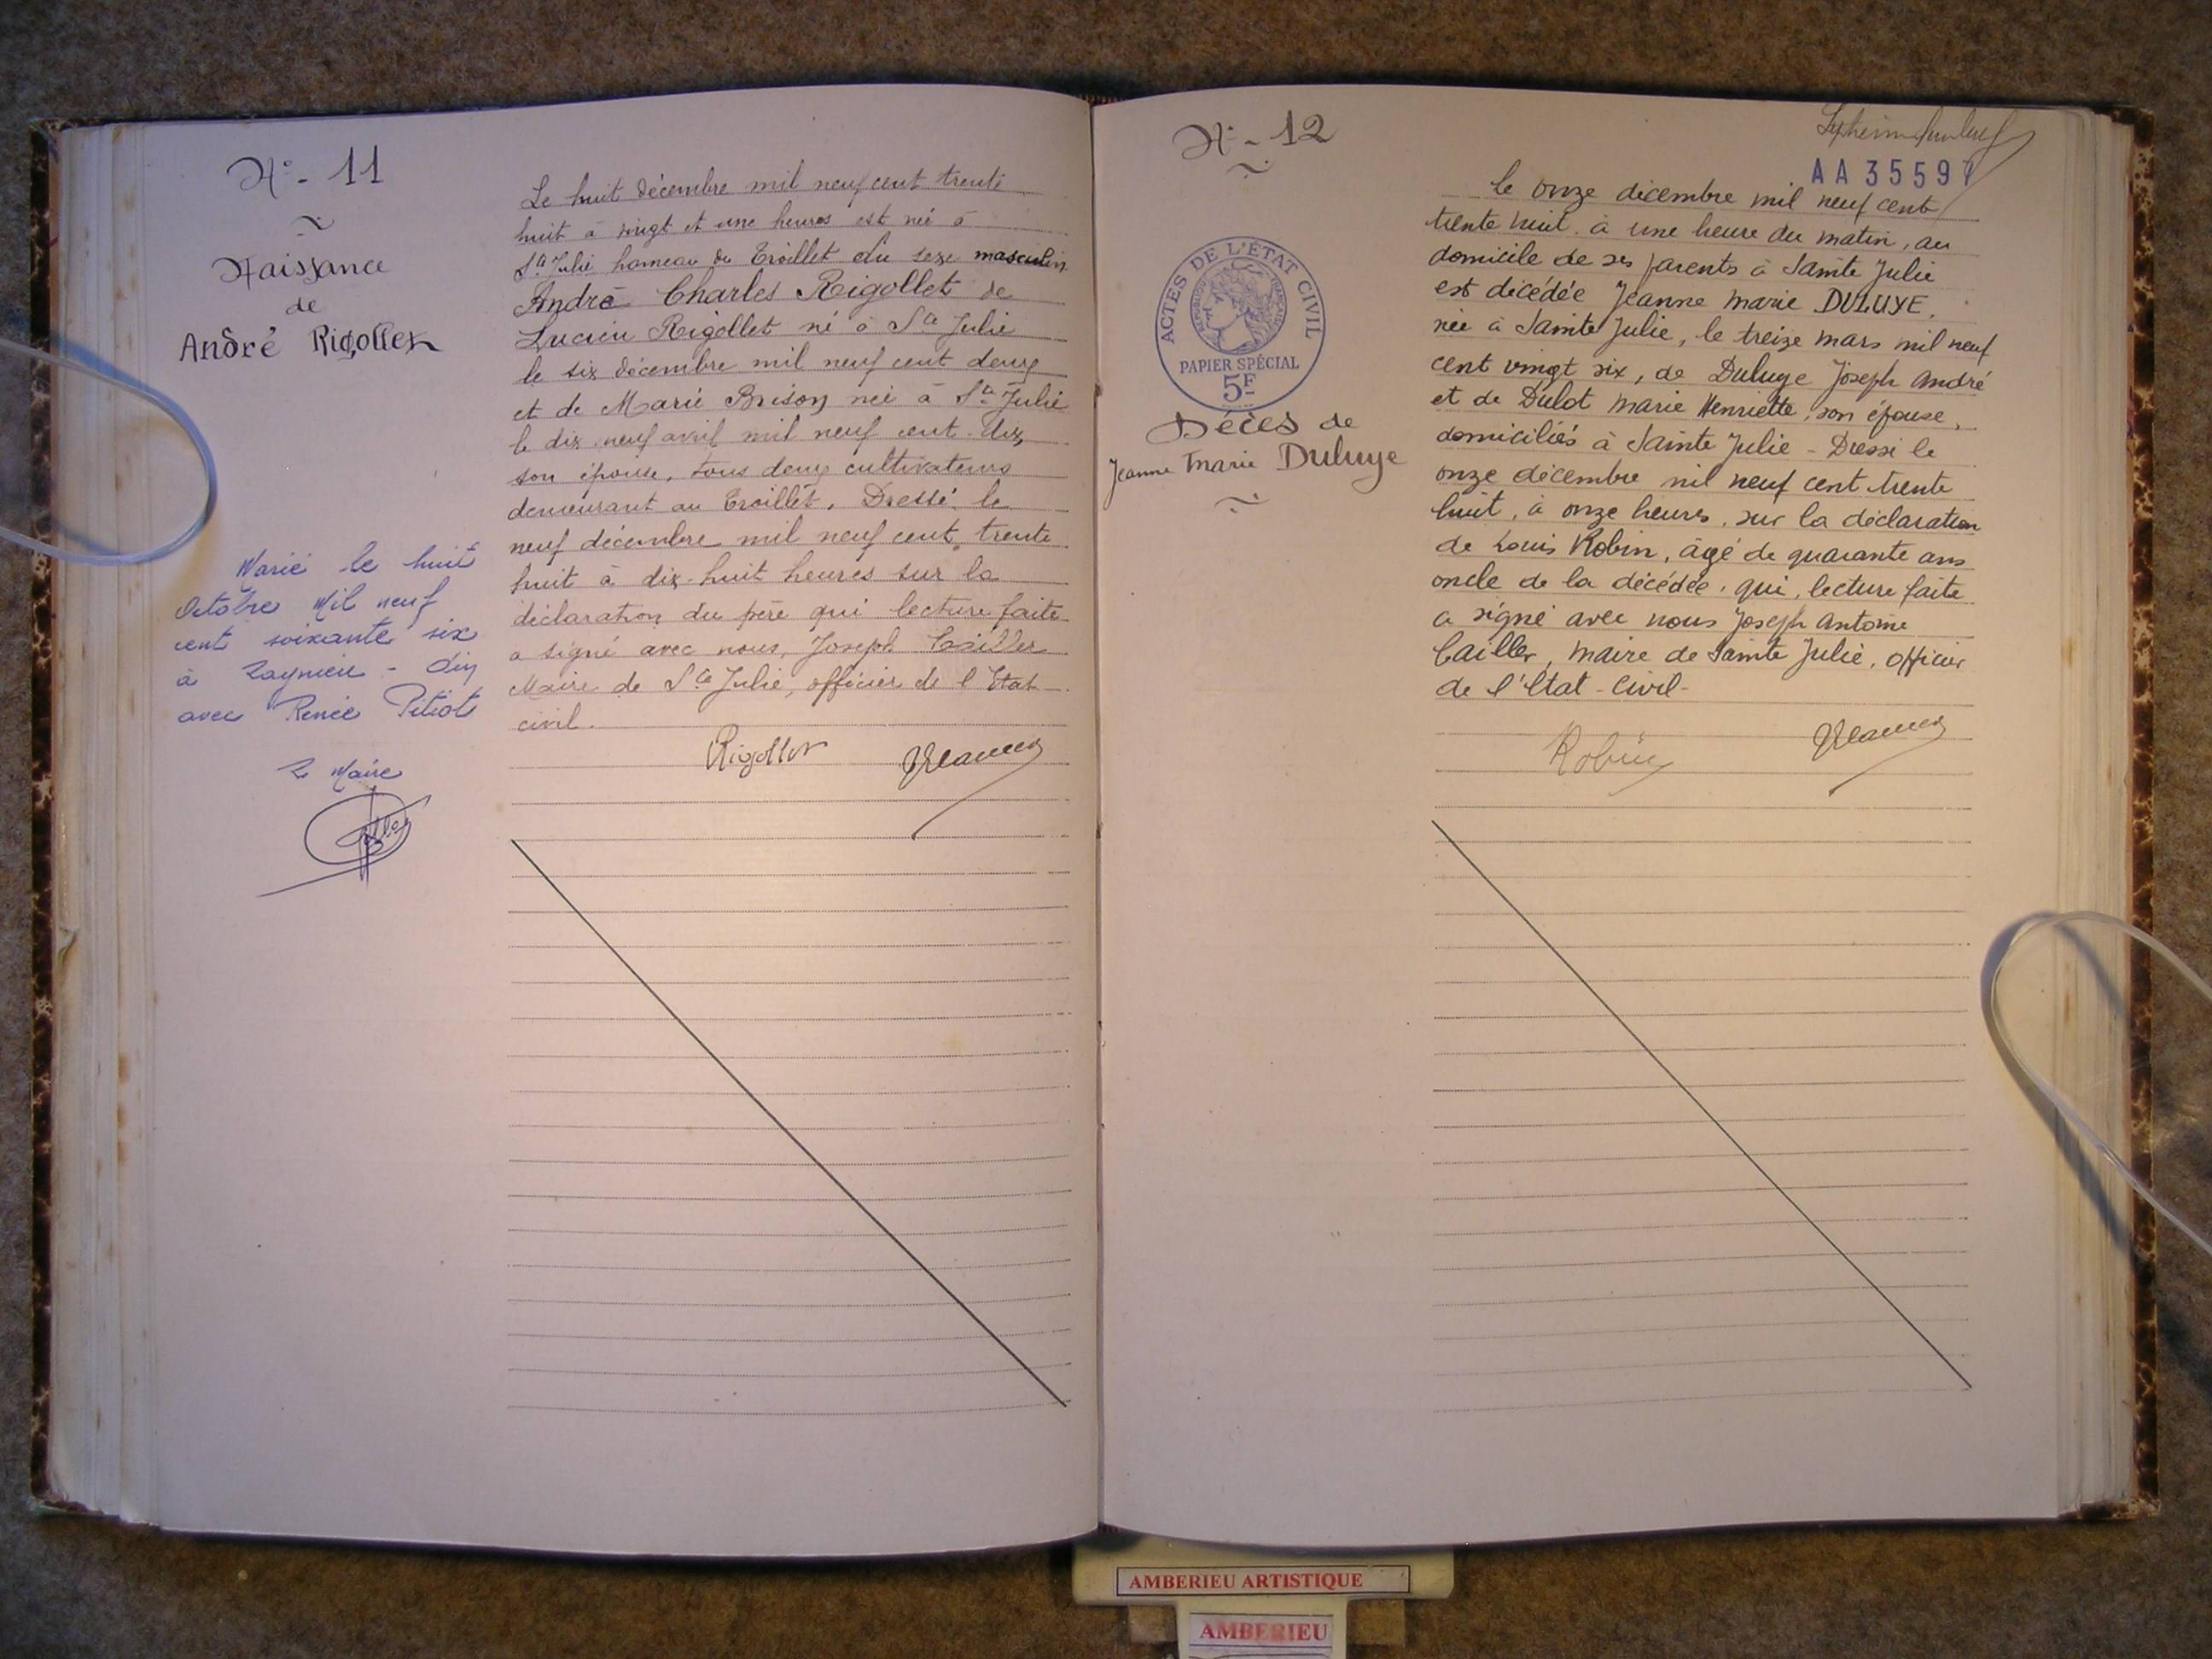 N° - 11
Naissance
de
André Rigollet
Marié le huit
Octobre Mil neuf
cent soixante six
à Lagnieu - Ain
avec Renée Pitiot
Le Maire
Le huit décembre mil neuf cent trente
huit à vingt et une heures est né à
Ste Julie hameau du Troillet du sexe masculin
André Charles Rigollet de
Lucien Rigollet né à Ste Julie
le six décembre mil neuf cent deux
et de Marie Brison née à Ste Julie
le dix neuf avril mil neuf cent dix
son épouse, tous deux cultivateurs
demeurant au Troillet. Dressé le
neuf décembre mil neuf cent trente
huit à dix-huit heures sur la
déclaration du père qui lecture faite
a signé avec nous, Joseph Cailler
Maire de Ste Julie, officier de l'Etat
civil.
Rigollet
N° - 12
ACTES DE L'ÉTAT CIVIL
RÉPUBLIQUE FRANÇAISE
PAPIER SPÉCIAL
5F
Décès de
Jeanne Marie Duluye
AA 35597
le onze décembre mil neuf cent
trente huit, à une heure du matin, au
domicile de ses parents à Sainte Julie
est décédée Jeanne Marie DULUYE,
née à Sainte Julie, le treize mars mil neuf
cent vingt six, de Duluye Joseph André
et de Dulot Marie Henriette, son épouse,
domiciliés à Sainte Julie - Dressé le
onze décembre mil neuf cent trente
huit, à onze heures, sur la déclaration
de Louis Robin, âgé de quarante ans
oncle de la décédée, qui, lecture faite
a signé avec nous Joseph Antoine
Cailler, Maire de Sainte Julie, Officier
de l'Etat-Civil-
Robin
AMBERIEU ARTISTIQUE
AMBERIEU